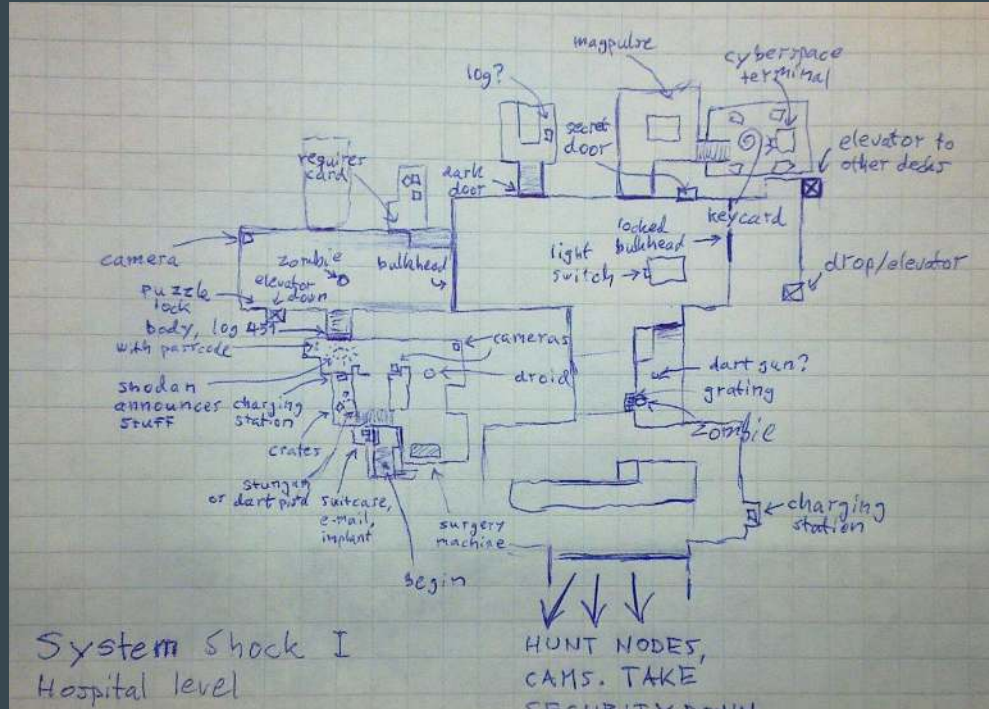 magpulse
cyberspace
terminal
log?
secret
door
elevator to
other decks
requires
card
dark
door
keycard
locked
bulkhead
light
switch
camera
zombie
elevator
down
bulkhead
drop/elevator
puzzle
lock
body, log 451
with passcode
cameras
dart gun?
grating
droid
shodan
announces
stuff
charging
station
zombie
crates
stungun
or dart pistol
suitcase,
e-mail,
implant
surgery
machine
charging
station
Begin
System Shock I
Hospital level
HUNT NODES,
CAMS. TAKE
SECURITY DOWN